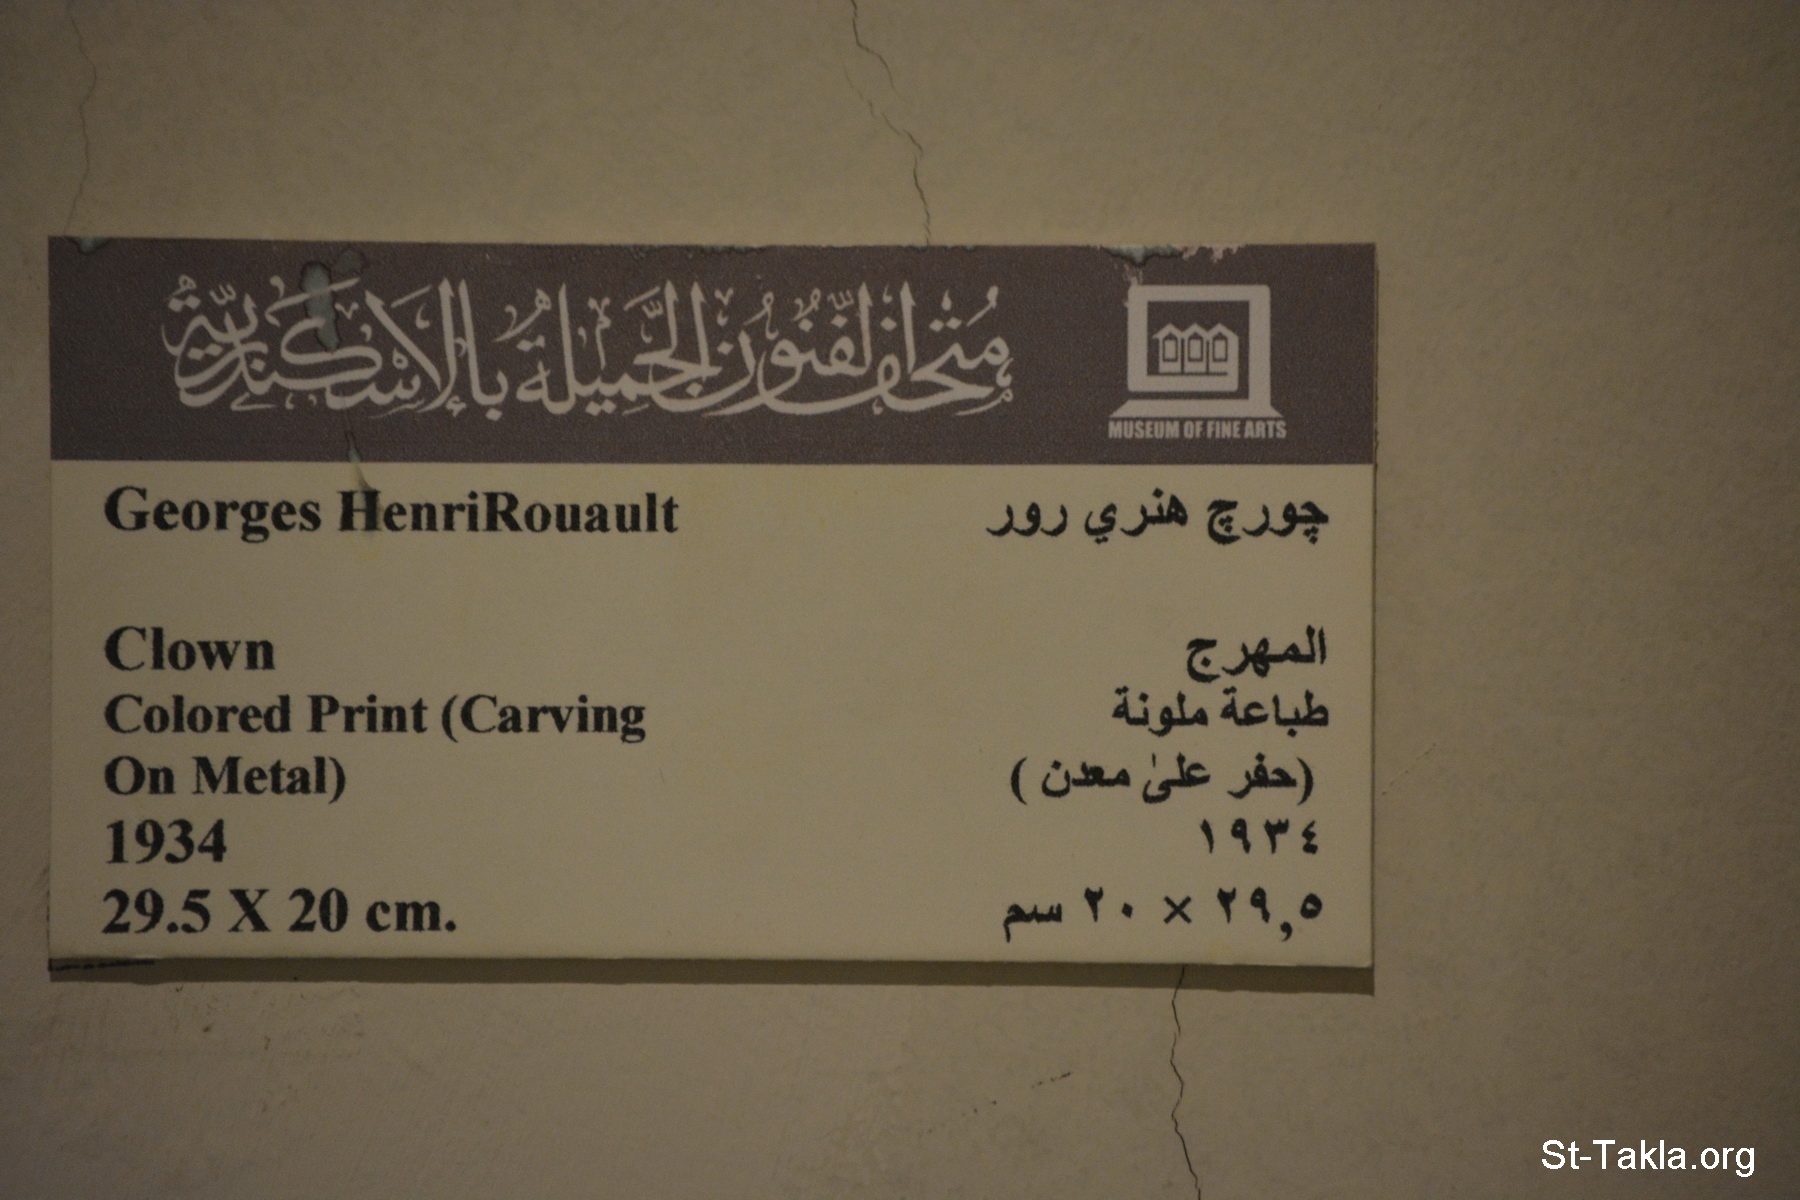 متحف الفنون الجميلة بالإسكندرية
MUSEUM OF FINE ARTS
Georges HenriRouault
چورچ هنري رور
Clown
المهرج
Colored Print (Carving
طباعة ملونة
On Metal)
(حفر على معدن )
1934
١٩٣٤
29.5 X 20 cm.
٢٩,٥ × ٢٠ سم
St-Takla.org